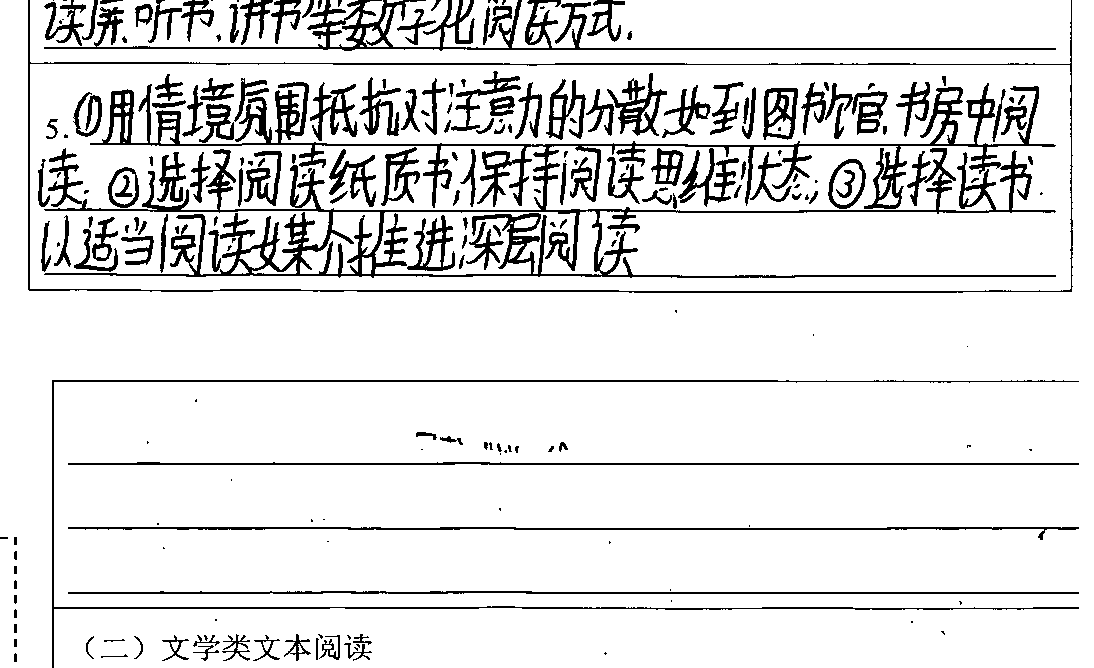 读屏、听书、讲书等数字化阅读方式.
5. ①用情境氛围抵抗对注意力的分散,如到图书馆、书房中阅
读; ②选择阅读纸质书,保持阅读思维状态; ③选择读书
以适当阅读媒介推进深层阅读
（二）文学类文本阅读